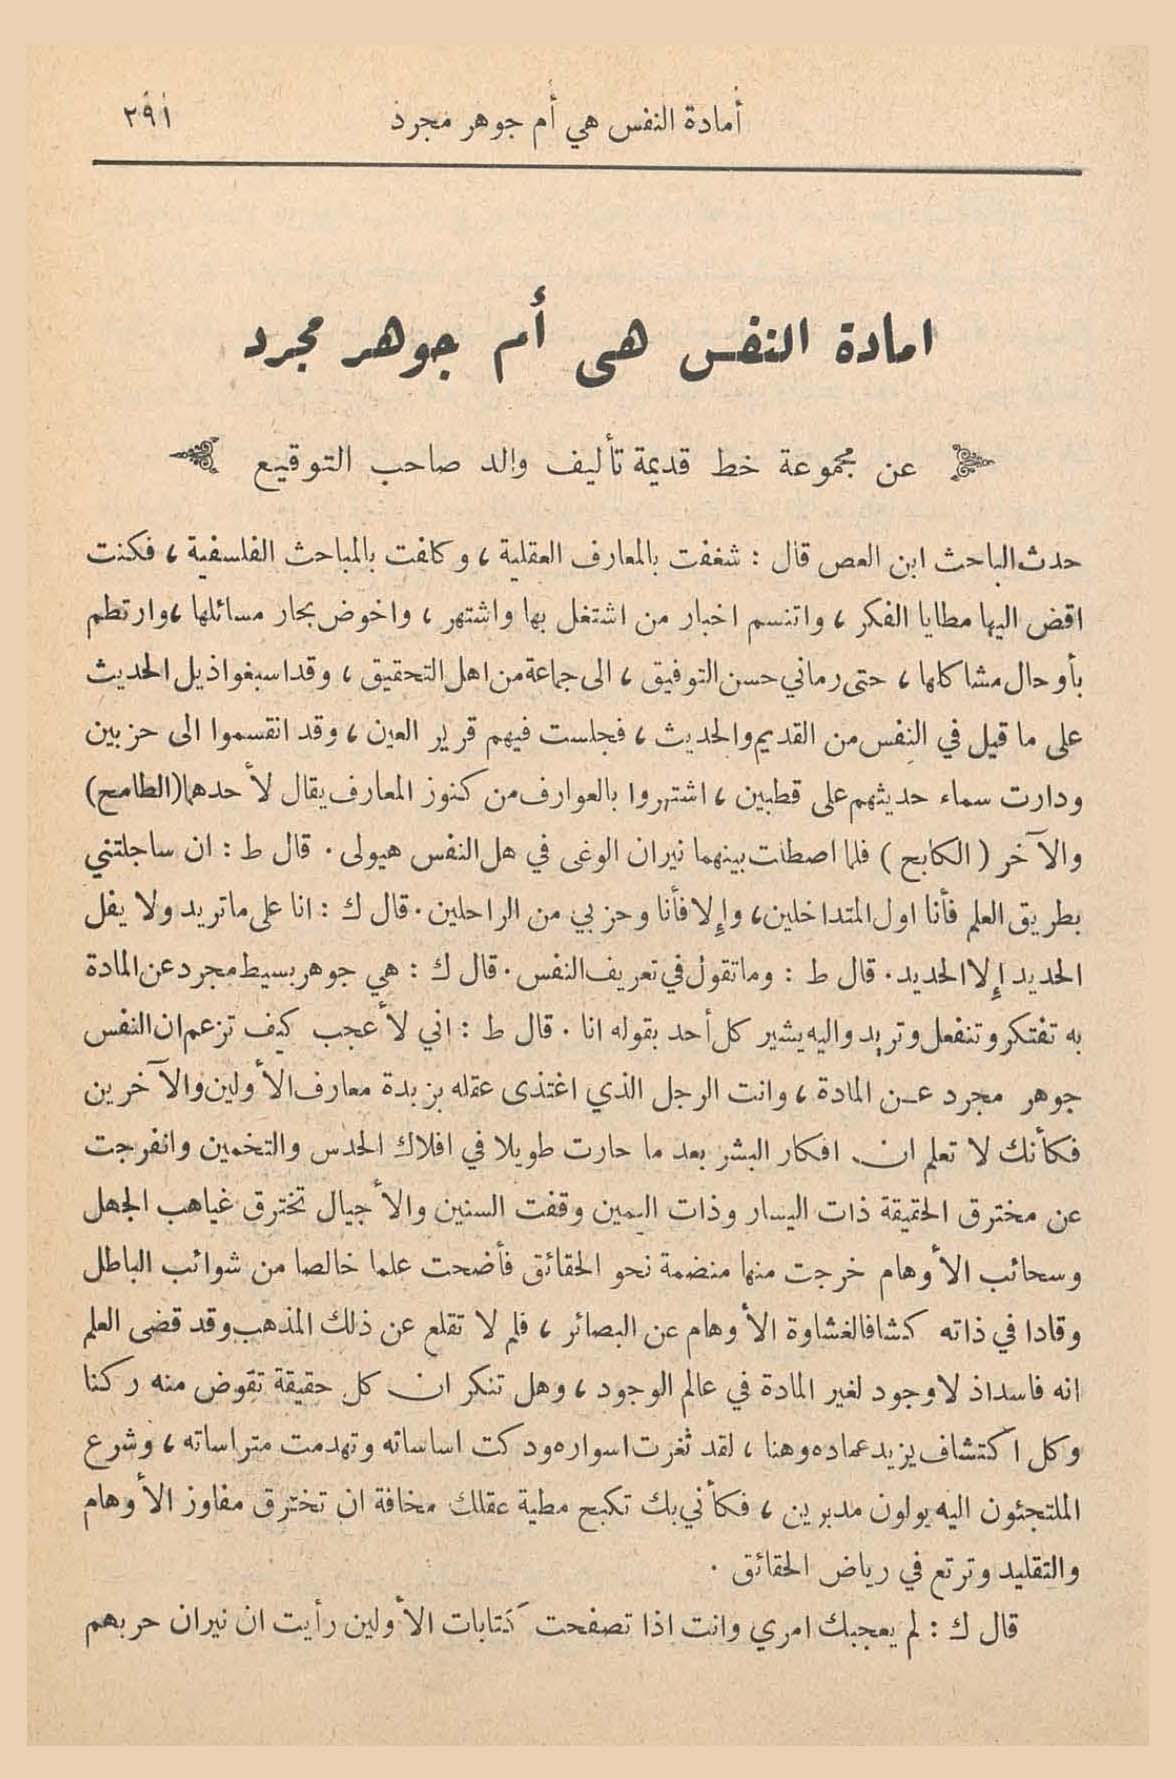 أمادة النفس هي أم جوهر مجرد ٢٩١
امادة النفس هي أم جوهر مجرد
عن مجموعة خط قديمة تأليف والد صاحب التوقيع
حدث الباحث ابن العص قال : شغفت بالمعارف العقلية ، وكلفت بالمباحث الفلسفية ، فكنت
اقض اليها مطايا الفكر ، واتنسم اخبار من اشتغل بها واشتهر ، واخوض بحار مسائلها ، وارتطم
بأوحال مشاكلها ، حتى رماني حسن التوفيق ، الى جماعة من اهل التحقيق ، وقد اسبغوا ذيل الحديث
على ما قيل في النفس من القديم والحديث ، فجلست فيهم قرير العين ، وقد انقسموا الى حزبين
ودارت سماء حديثهم على قطبين ، اشتهروا بالعوارف من كنوز المعارف يقال لأحدهما (الطامح)
والآخر ( الكابح ) فلما اصطلت بينهما نيران الوغى في هل النفس هيولى . قال ط : ان ساجلتني
بطريق العلم فأنا اول المتداخلين ، وإلا فأنا وحزبي من الراحلين . قال ك : انا على ما تريد ولا يفل
الحديد إلا الحديد . قال ط : وما تقول في تعريف النفس . قال ك : هي جوهر بسيط مجرد عن المادة
به تفتكر وتنفعل وتريد واليه يشير كل أحد بقوله انا . قال ط : اني لأعجب كيف تزعم ان النفس
جوهر مجرد عن المادة ، وانت الرجل الذي اغتذى عقله بزبدة معارف الأولين والآخرين
فكأنك لا تعلم ان افكار البشر بعد ما حارت طويلا في افلاك الحدس والتخمين وانفرجت
عن مخترق الحقيقة ذات اليسار وذات اليمين وقفت السنين والأجيال تخترق غياهب الجهل
وسحائب الأوهام خرجت منها منضمة نحو الحقائق فأضحت علما خالصا من شوائب الباطل
وقادا في ذاته كشافا لغشاوة الأوهام عن البصائر ، فلم لا تقلع عن ذلك المذهب وقد قضى العلم
انه فاسد اذ لا وجود لغير المادة في عالم الوجود ، وهل تنكر ان كل حقيقة تقوض منه ركنا
وكل اكتشاف يزيد عماده وهنا ، لقد ثغرت اسواره ودكت اساساته وتهدمت متراساته ، وشرع
الملتجئون اليه يولون مدبرين ، فكأني بك تكبح مطية عقلك مخافة ان تخترق مفاوز الأوهام
والتقليد وترتع في رياض الحقائق .
قال ك : لم يعجبك امري وانت اذا تصفحت كتابات الأولين رأيت ان نيران حربهم